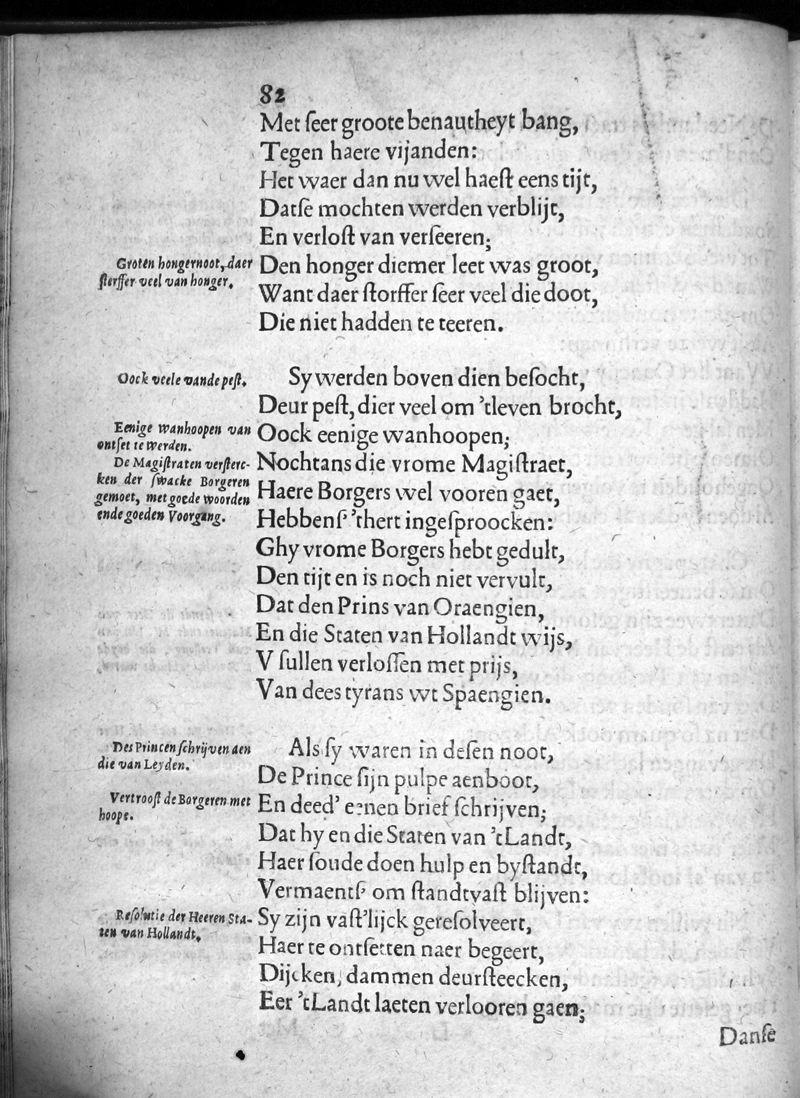 82
Met ſeer groote benautheyt bang,
Tegen haere vijanden:
Het waer dan nu wel haeſt eens tijt,
Datſe mochten werden verblijt,
En verloſt van verſeeren;
Groten hongernoot, daer
ſterffer veel van honger.
Den honger diemer leet was groot,
Want daer ſtorffer ſeer veel die doot,
Die niet hadden te teeren.
Oock veele vande peſt.
Sy werden boven dien beſocht,
Deur peſt, dier veel om 'tleven brocht,
Eenige wanhoopen van
ontſet te werden.
Oock eenige wanhoopen;
De Magiſtraten verſterc-
ken der ſwacke Borgeren
gemoet, met goede woorden
ende goeden Voorgang.
Nochtans die vrome Magiſtraet,
Haere Borgers wel vooren gaet,
Hebbenſ' 'thert ingeſproocken:
Ghy vrome Borgers hebt gedult,
Den tijt en is noch niet vervult,
Dat den Prins van Oraengien,
En die Staten van Hollandt wijs,
V ſullen verloſſen met prijs,
Van dees tyrans wt Spaengien.
Des Princen ſchrijven aen
die van Leyden.
Als ſy waren in deſen noot,
De Prince ſijn pulpe aenboot,
Vertrooſt de Borgeren met
hoope.
En deed' eenen brief ſchrijven;
Dat hy en die Staten van 'tLandt,
Haer ſoude doen hulp en byſtandt,
Vermaentſ' om ſtandtvaſt blijven:
Reſolutie der Heeren Sta-
ten van Hollandt.
Sy zijn vaſt'lijck gereſolveert,
Haer te ontſetten naer begeert,
Dijcken, dammen deurſteecken,
Eer 'tLandt laeten verlooren gaen;
Danſe